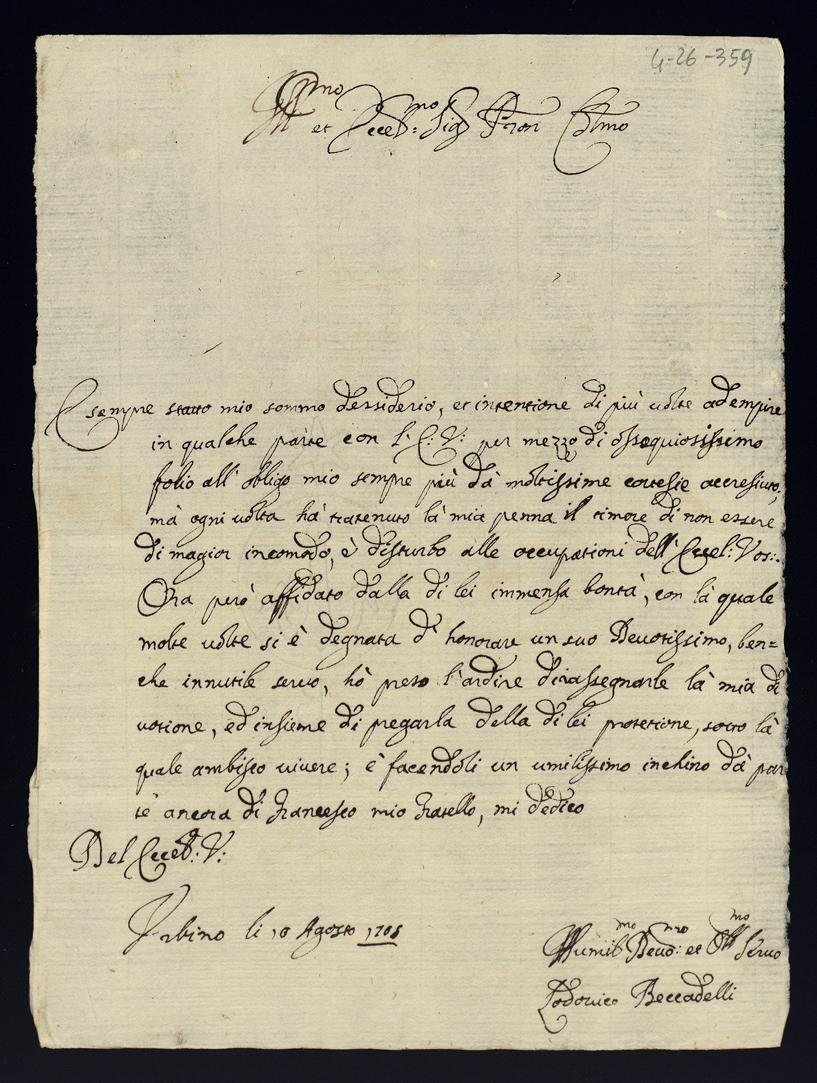 4-26-359
Ill.mo et Eccel:mo Sig.r P'ron Col.mo
È sempre statto mio sommo dessiderio, et intentione di più volte adempire
in qualche parte con l'E: V: per mezzo di ossequiosissimo
folio all' obligo mio sempre più dà moltissime cortesie accresiuto;
mà ogni volta hà tratenuto là mia penna il timore di non essere
di magior incomodo, è disturbo alle occupationi dell' Eccel: Vos:.
Ora però affidato dalla di lei immensa bontà, con là quale
molte volte si è degnata d' honorare un suo Devotissimo, ben=
che innutile servo, hò preso l'ardire di rassegnarle là mia di
votione, ed insieme di pregarla della di lei protetione, sotto là
quale ambisco vivere; è facendoli un umilissimo inchino dà par
te ancora di Francesco mio Fratello, mi dedico
Del Eccel: V:
Urbino li 10 Agosto 1705
Humil:mo Devo:mo et Obl:mo Servo
Lodovico Beccadelli